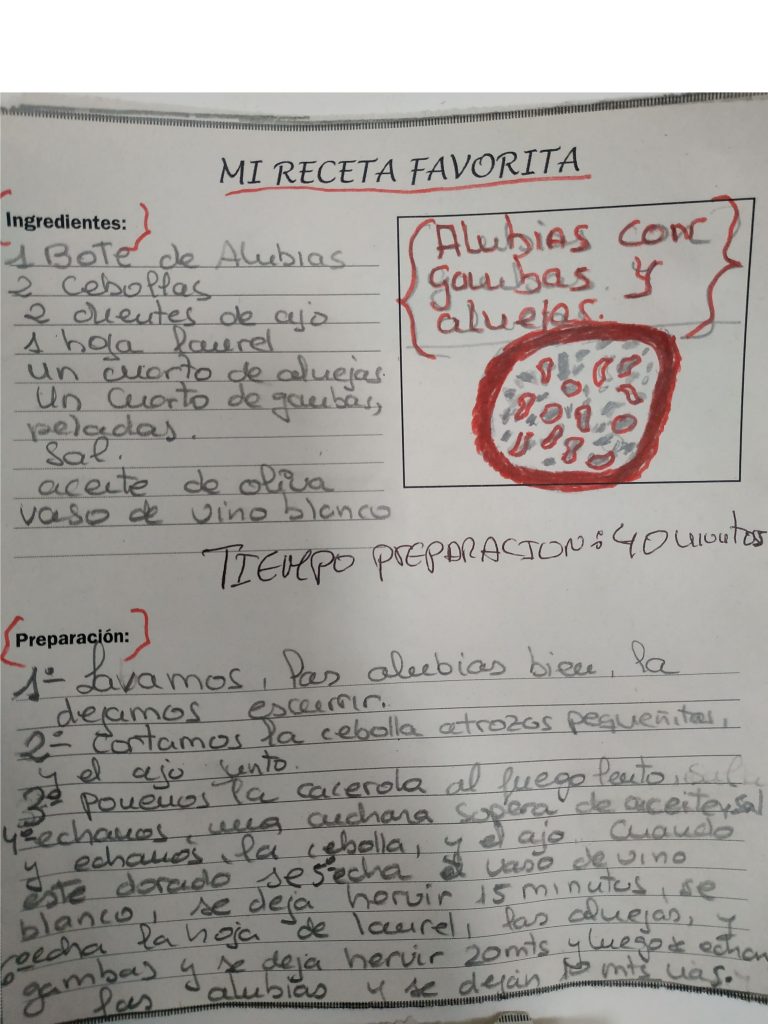 MI RECETA FAVORITA
Ingredientes:
1 Bote de Alubias
2 Cebollas
2 dientes de ajo
1 hoja laurel
un cuarto de aluejas.
Un Cuarto de gambas,
peladas.
Sal.
aceite de oliva
vaso de vino blanco
Alubias con
gambas y
aluejas.
TIEMPO PREPARACION: 40 minutos
Preparación:
1º- Lavamos, las alubias bien, la
dejamos escurrir.
2º- Cortamos la cebolla atrozos pequeñitos,
y el ajo junto.
3º ponemos la cacerola al fuego lento,
4º echamos, una cuchara sopera de aceite y sal
y echamos, la cebolla, y el ajo. Cuando
este dorado se 5º echa el vaso de vino
blanco, se deja hervir 15 minutos, se
echa la hoja de laurel, las aluejas, y
gambas y se deja hervir 20 mts y luego se echan
las alubias y se dejan 10 mts uas.